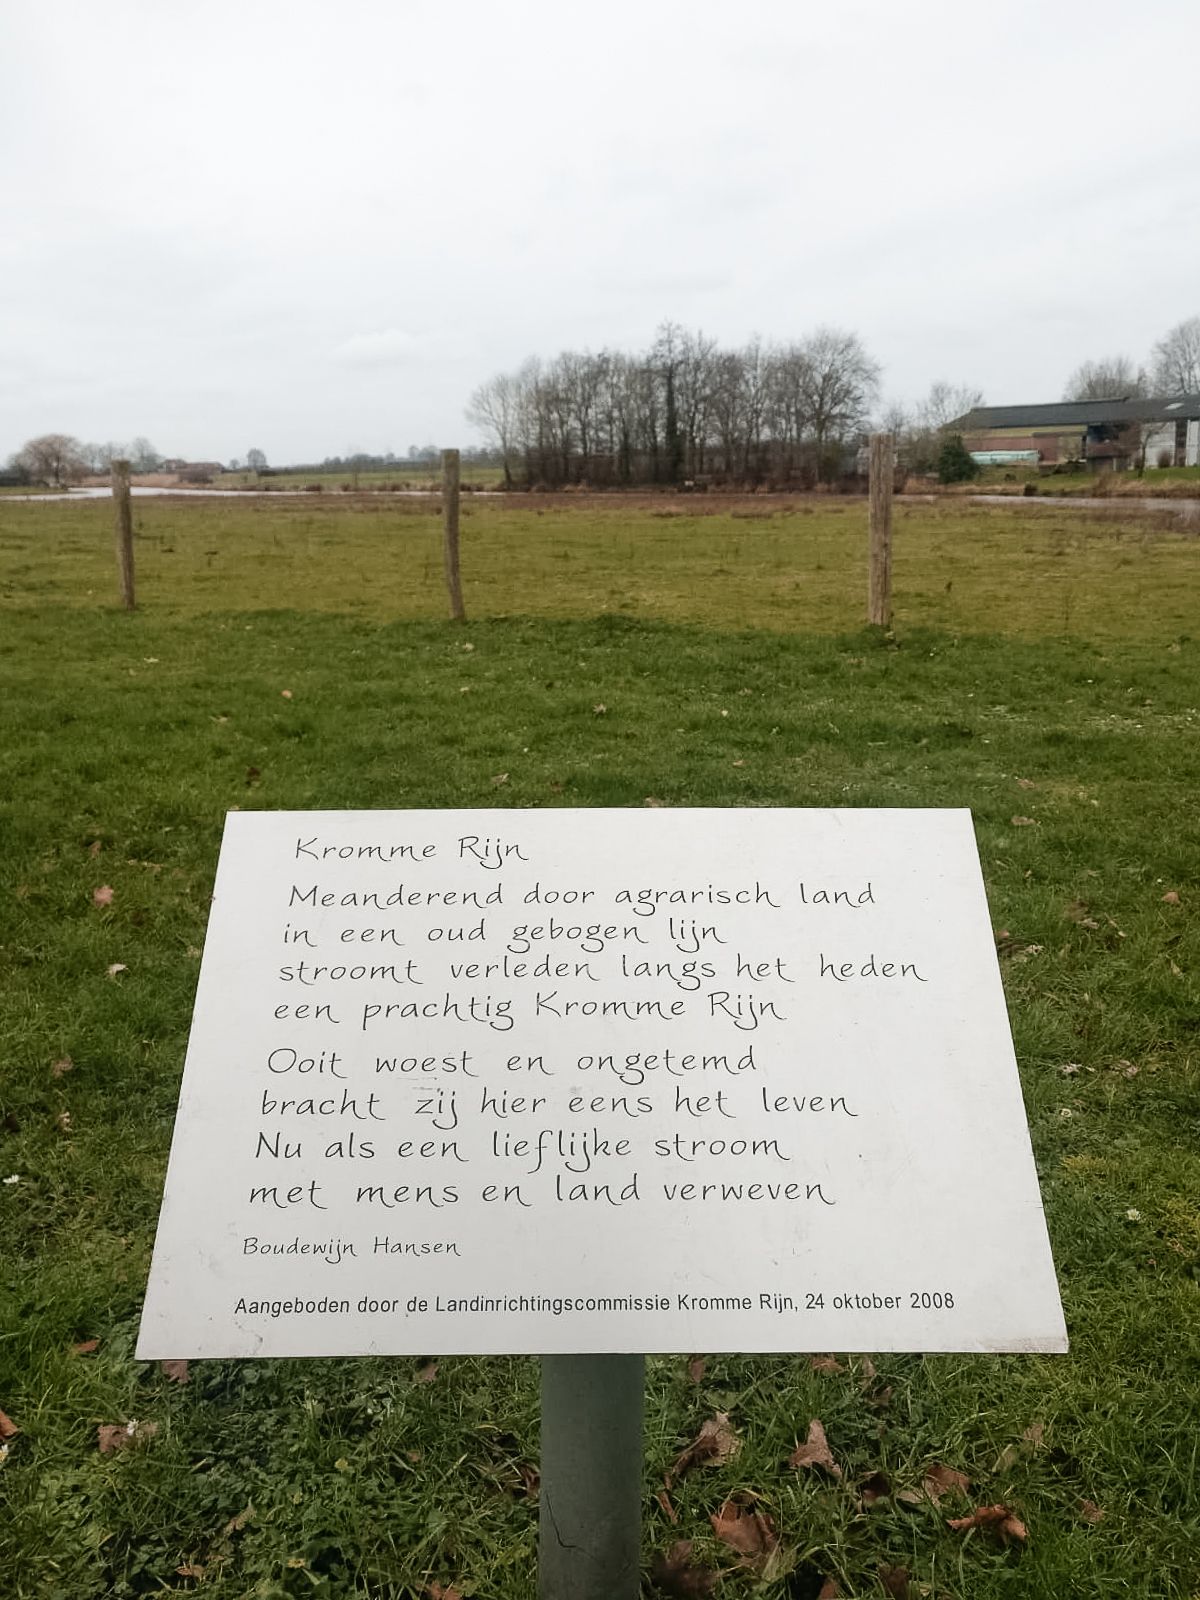 Kromme Rijn
Meanderend door agrarisch land
in een oud gebogen lijn
stroomt verleden langs het heden
een prachtig Kromme Rijn
Ooit woest en ongetemd
bracht zij hier eens het leven
Nu als een lieflijke stroom
met mens en land verweven
Boudewijn Hansen
Aangeboden door de Landinrichtingscommissie Kromme Rijn, 24 oktober 2008